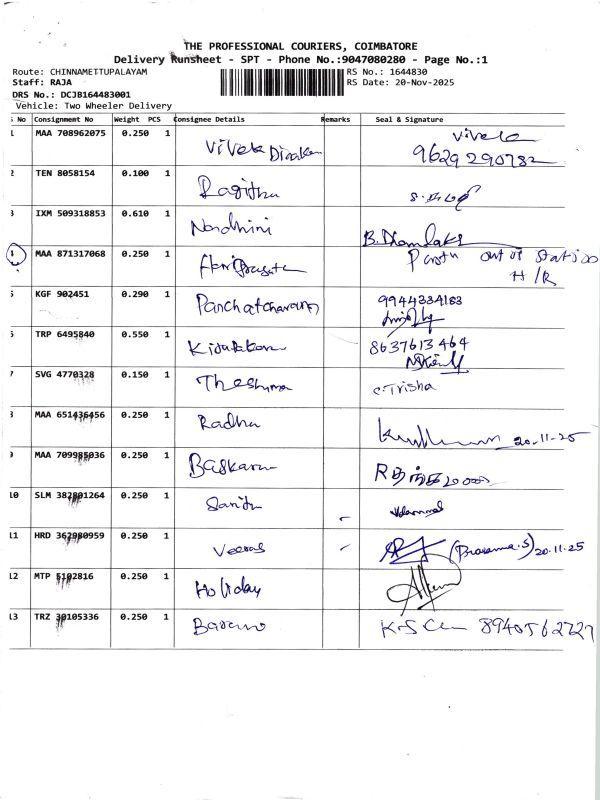 THE PROFESSIONAL COURIERS, COIMBATORE
Delivery Runsheet - SPT - Phone No.:9047080280 - Page No.:1
Route: CHINNAMETTUPALAYAM RS No.: 1644830
Staff: RAJA RS Date: 20-Nov-2025
DRS No.: DCJB164483001
Vehicle: Two Wheeler Delivery
No Consignment No Weight PCS Consignee Details Remarks Seal & Signature
1 MAA 708962075 0.250 1 Vivek
9629290782
2 TEN 8058154 0.100 1
3 IXM 509318853 0.610 1 Nandhini
4 MAA 871317068 0.250 1 out of station
H/R
5 KGF 902451 0.290 1 9944334183
6 TRP 6495840 0.550 1 8637613464
7 SVG 4770328 0.150 1 C. Trisha
8 MAA 651436456 0.250 1 Radha 20-11-25
9 MAA 709985036 0.250 1 Baskaran
10 SLM 382801264 0.250 1
11 HRD 362980959 0.250 1 (Prasanna.S) 20-11-25
12 MTP 5102816 0.250 1 Holiday
13 TRZ 30105336 0.250 1 8940562727